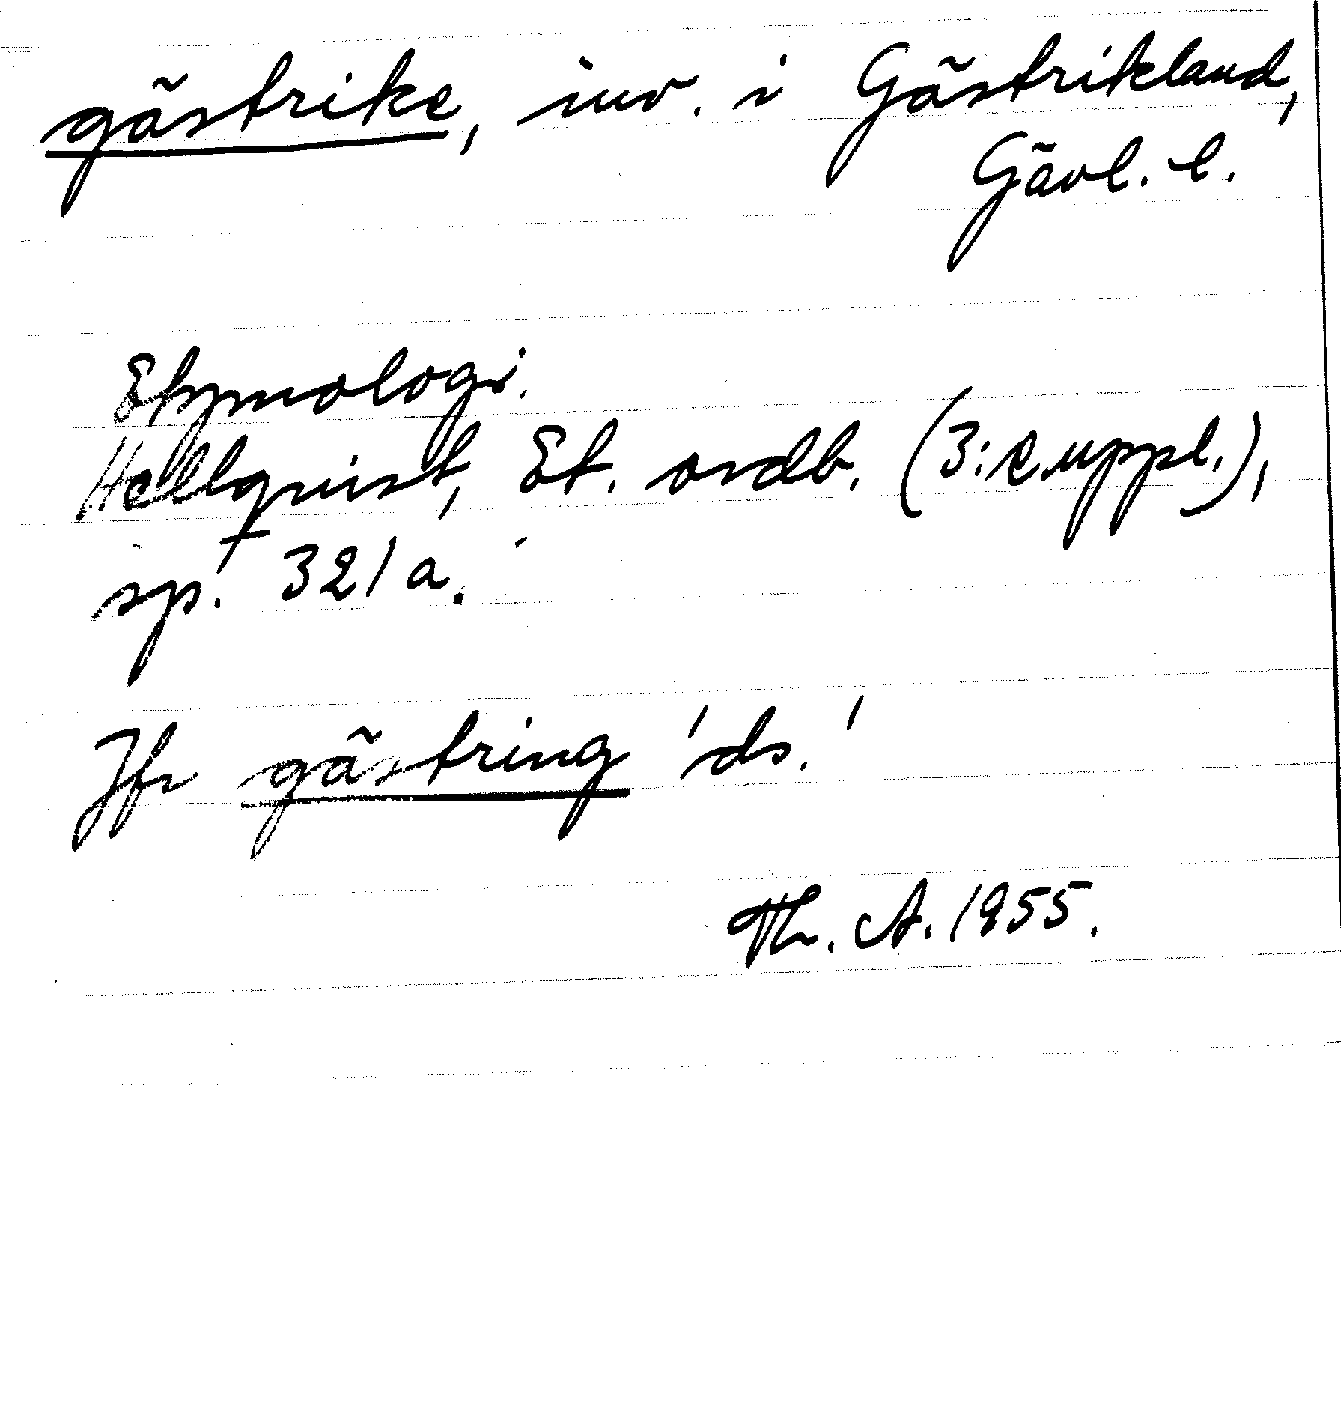 gästrike, inv. i Gästrikland,
Gävl. l.
Etymologi.
Hellquist, Et. ordb. (3:e uppl.),
sp. 321 a.
Jfr gästring 'ds.'
Th. A. 1955.